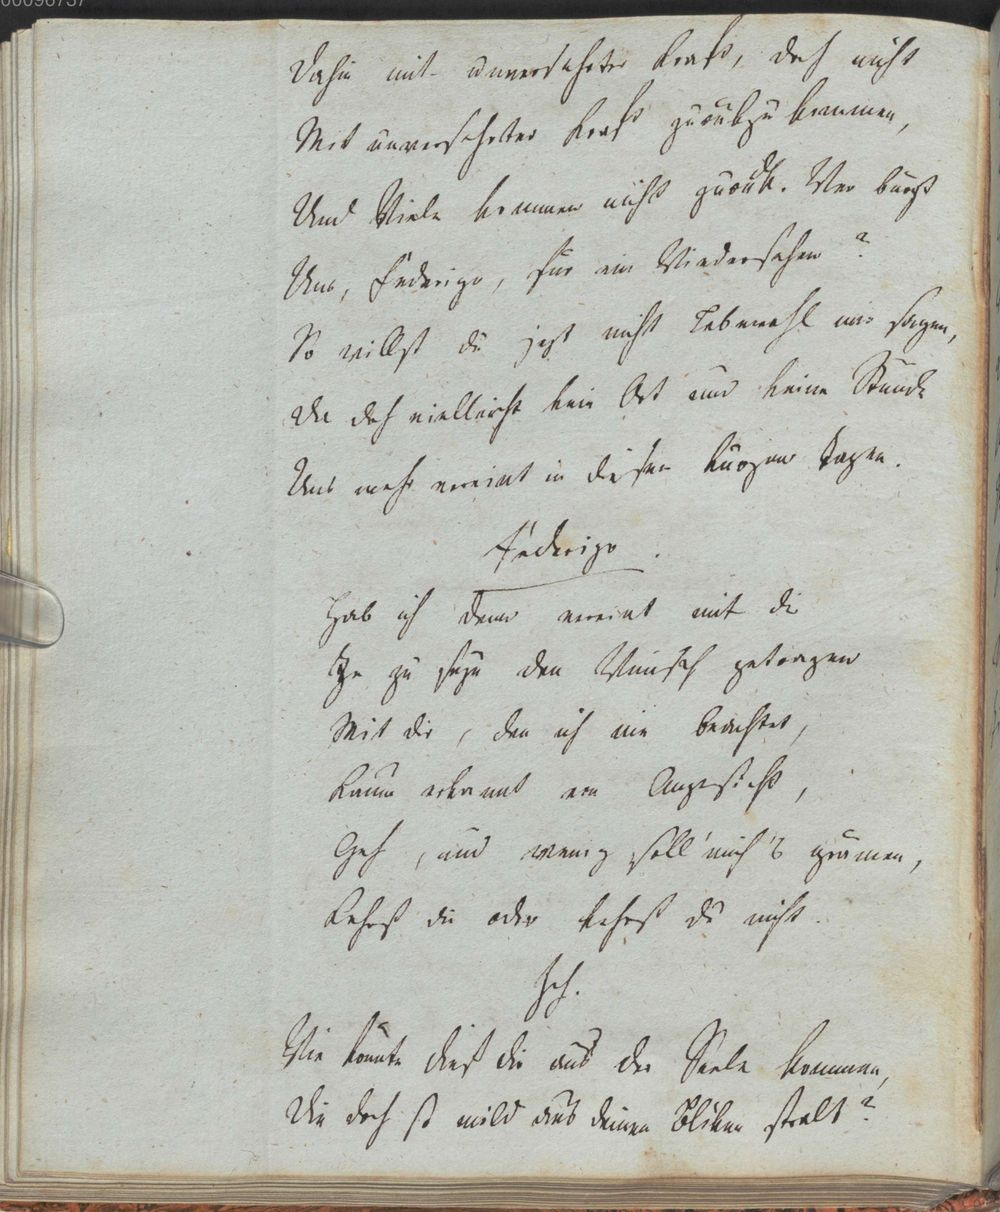 00096737
Dahin mit unversehrter Kraft, doch nicht
Mit unversehrter Kraft zurükzukommen,
Und Viele kommen nicht zurük. Wer bürgt
Uns, Federigo, für ein Wiedersehen?
So willst du jezt nicht Lebewohl mir sagen,
Da doch vielleicht kein Ort und keine Stunde
Uns mehr vereint in diesen kurzen Tagen.
Federigo.
Hab ich denn vereint mit dir
Je zu seyn den Wunsch getragen
Mit dir, den ich nie beachtet,
Kaum erkannt von Angesicht,
Geh, und wenig soll mich's grämen,
Kehrst du oder kehrst du nicht.
Ich.
Wie konnte dieß dir aus der Seele kommen,
Die doch so mild aus deinen Bliken stralt?